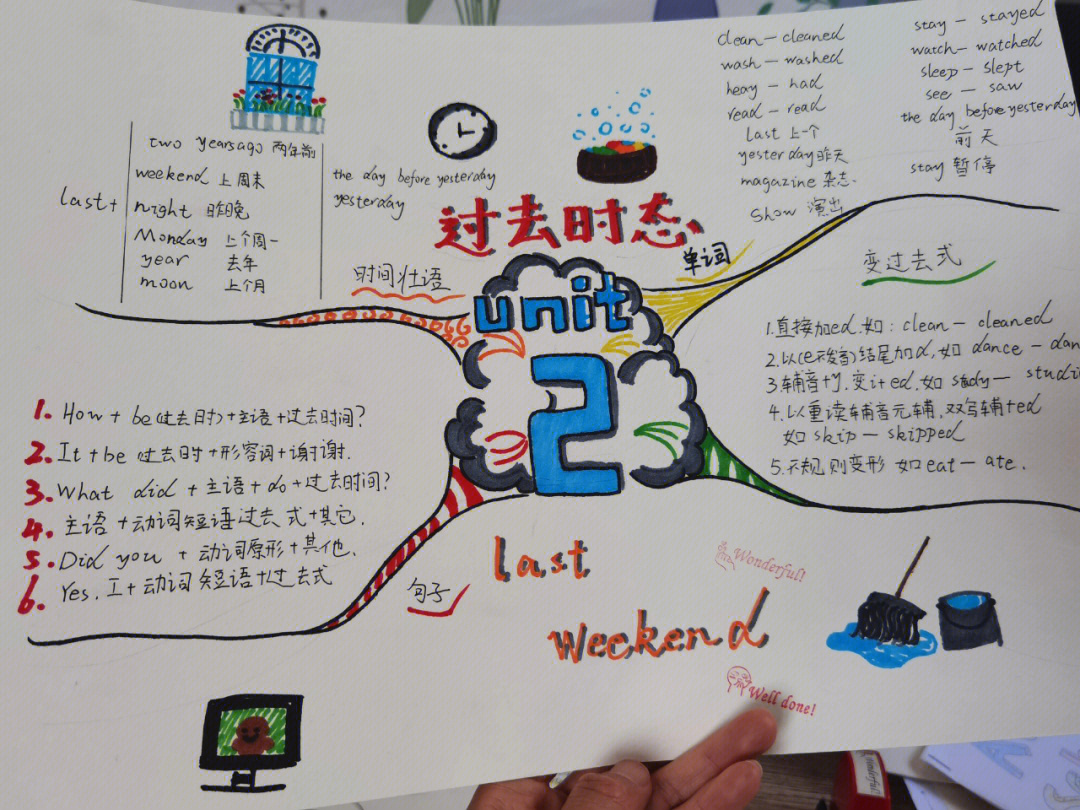 过去时态
unit
2
last
weekend
时间壮语
last+
two yearsago 两年前
weekend 上周末
night 昨晚
Monday 上个周一
year 去年
moon 上个月
the day before yesterday
yesterday
单词
clean — cleaned
wash — washed
heay — had
read — read
Last 上一个
yesterday 昨天
magazine 杂志.
Show 演出
stay — stayed
watch — watched
sleep — slept
see — saw
the day before yesterday
前天
stay 暂停
变过去式
1.直接加ed.如: clean — cleaned
2.以(e不发音)结尾加d,如 dance — dan
3.辅音+y.变i+ed,如 study — studi
4.以重读辅音元辅,双写辅+ed
如 skip — skipped
5.不规则变形 如eat — ate.
句子
1. How + be(过去时)+主语+过去时间?
2. It+be 过去时+形容词+谢谢.
3. What did + 主语+do+过去时间?
4. 主语+动词短语过去式+其它.
5. Did you + 动词原形+其他.
6. Yes, I+动词短语+过去式
Wonderful!
Well done!